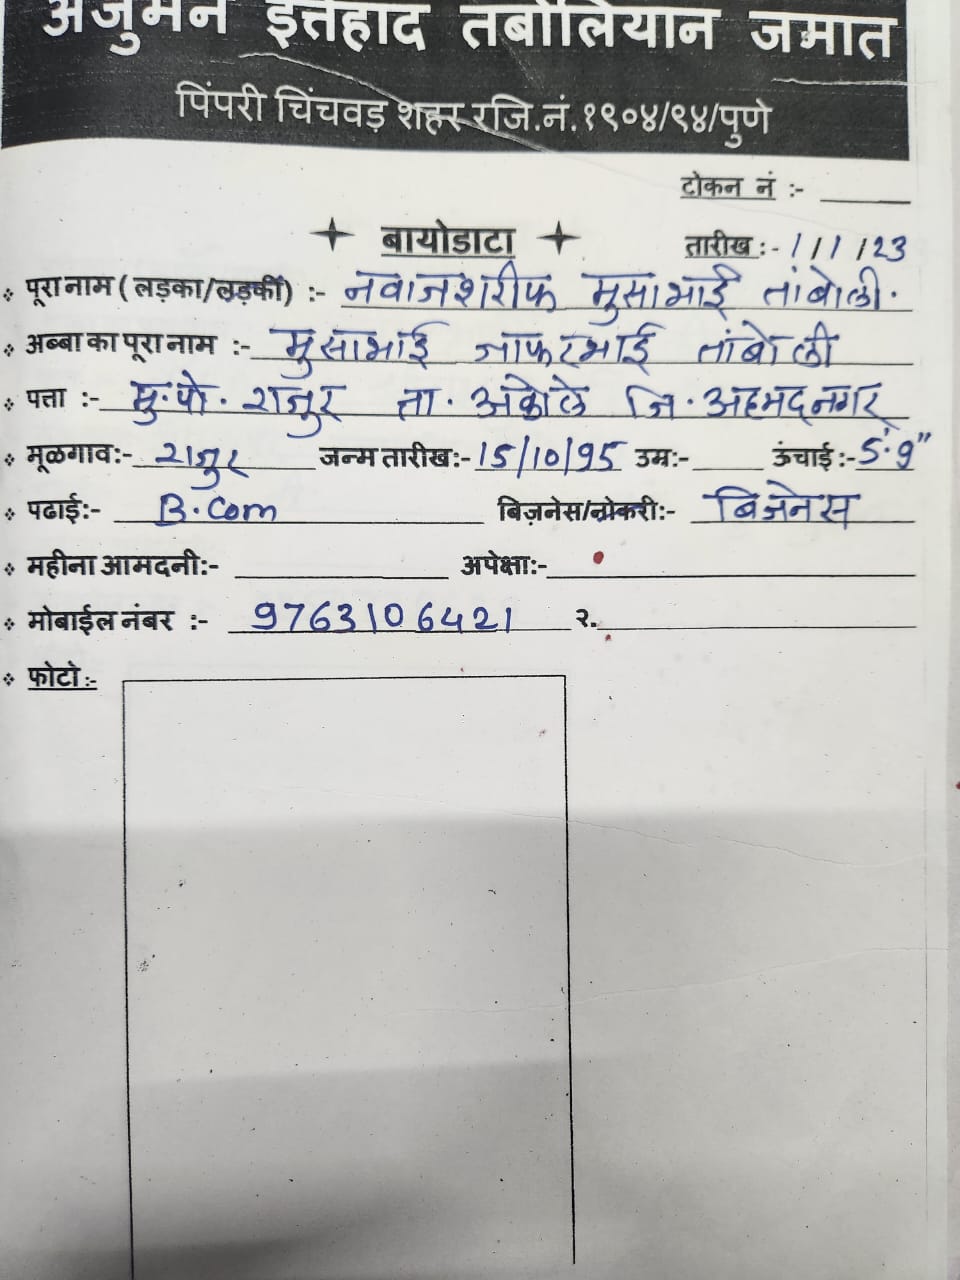 अंजुमन इत्तेहाद तंबोलियान जमात
पिंपरी चिंचवड़ शहर रजि.नं.१९०४/९४/पुणे
टोकन नं :-
बायोडाटा
तारीख :- 1/1/23
पूरा नाम ( लड़का/लड़की) :- नवाजशरीफ मुसाभाई तांबोली.
अब्बा का पूरा नाम :- मुसाभाई जाफरभाई तांबोली
पत्ता :- मु.पो. राजुर ता. अकोले जि. अहमदनगर
मूळगाव:- राजुर जन्म तारीख:- 15/10/95 उम्र:- ऊंचाई :- 5'.9"
पढाई:- B.Com बिज़नेस/नोकरी:- बिजनेस
महीना आमदनी:- अपेक्षा:-
मोबाईल नंबर :- 9763106421 २.
फोटो :-